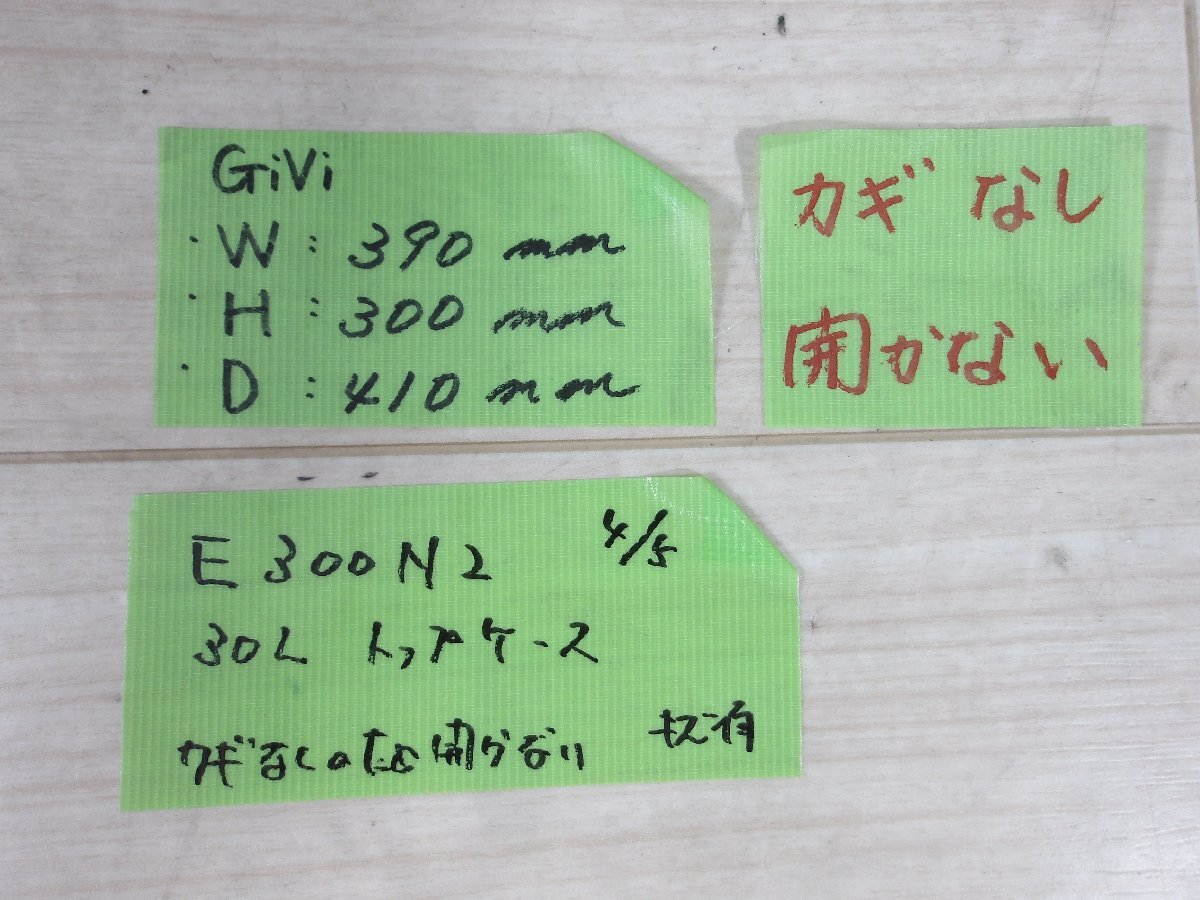 GiVi
・W：390 mm
・H：300 mm
・D：410 mm
カギ なし
開かない
E300N2 4/5
30L トップケース
カギなしの為開かない キズ有